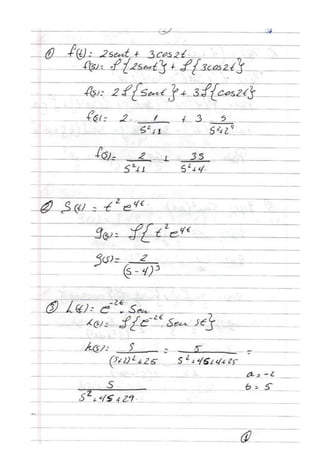 ① f(t): 2sent + 3cos2t
f(s): ℒ{2sent} + ℒ{3cos2t}
f(s): 2ℒ{sent} + 3ℒ{cos2t}
f(s)= 2. 1/(s²+1) + 3 s/(s²+2²)
f(s)= 2/(s²+1) + 3s/(s²+4)
② g(t) = t² e^4t
g(s)= ℒ{t² e^4t}
g(s)= 2/(s-4)³
③ h(t): e^-2t. Sen
h(s): ℒ{e^-2t Sen 5t}
h(s): 5/((s+2)²+25) = 5/(s²+4s+4+25) =
a=-2
5/(s²+4s+29) b=5
①